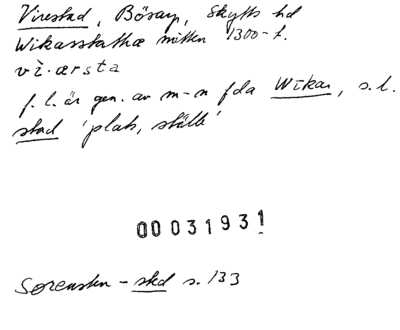 Virestad, Bösarp, Skytts hd
Wikasstathæ mitten 1300-t.
vì·ærsta
f.l. är gen. av m-n fda Wikar, s.l.
stad 'plats, ställe'
00031931
Sørensen - sted s. 133